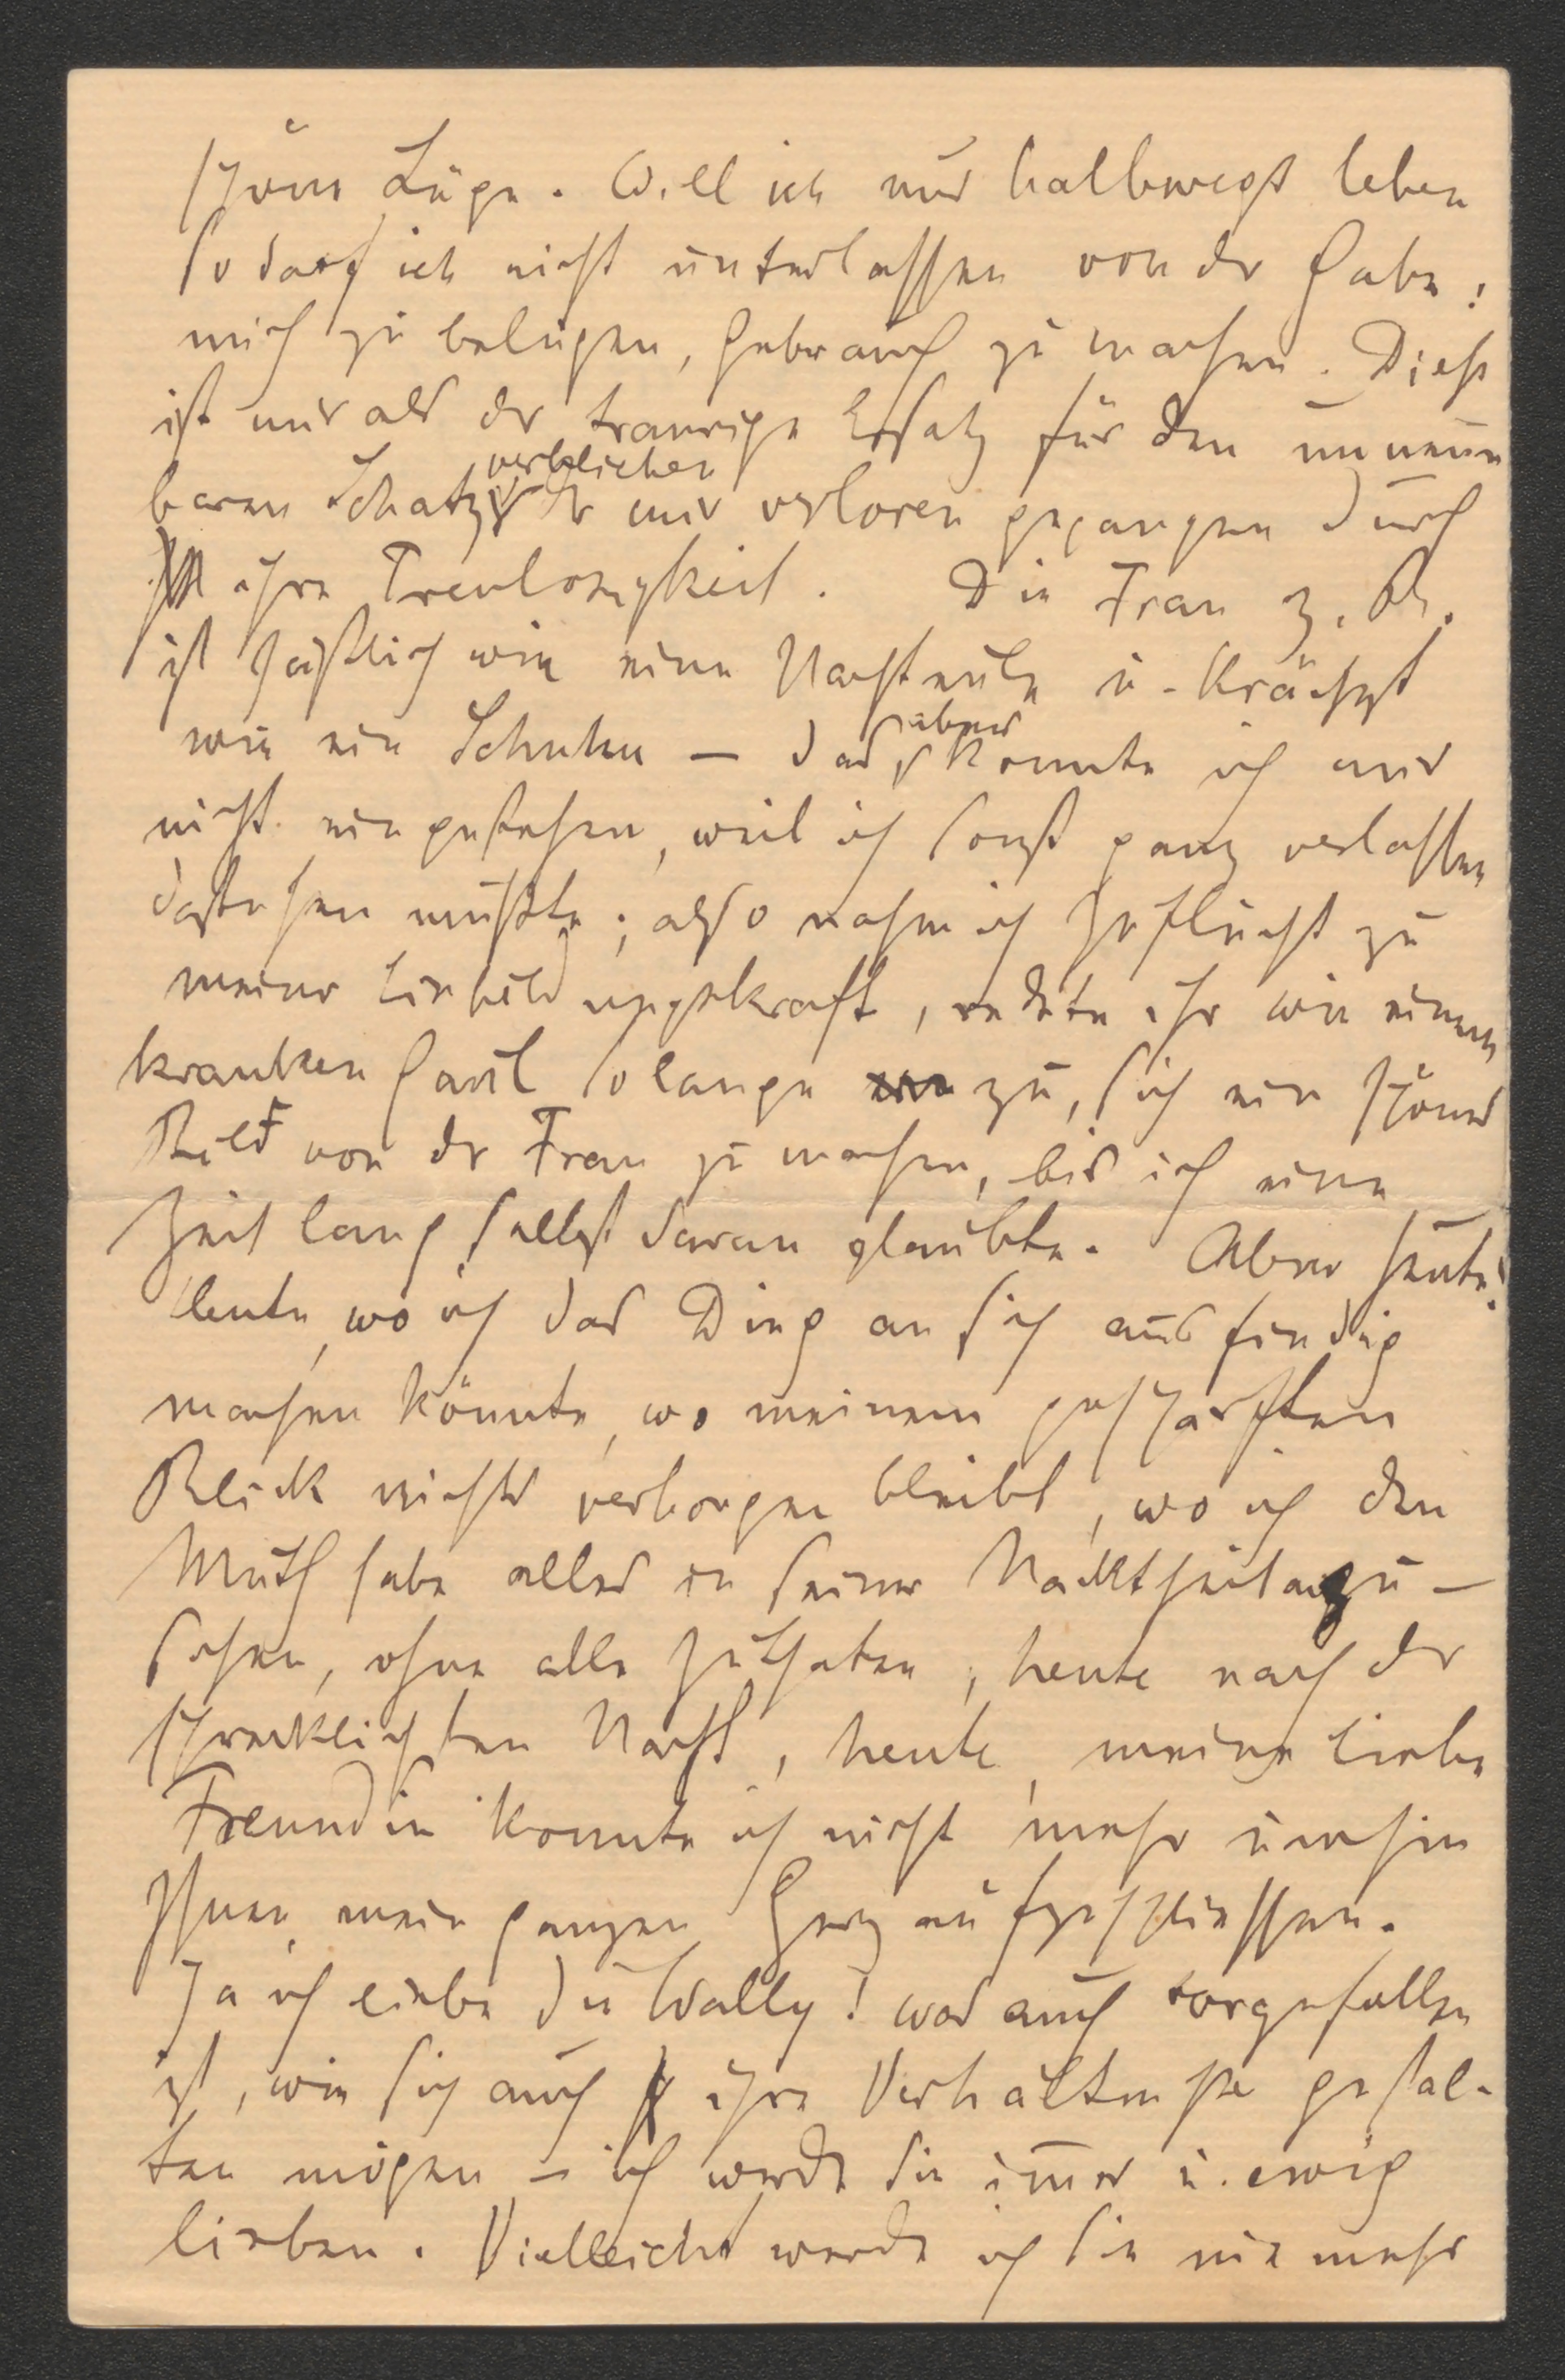 schöne Lüge. Will ich nur halbwegs leben
so darf ich nicht unterlassen von der Gabe:
mich zu belügen, Gebrauch zu machen. Dieß
ist mir als der traurige Ersatz für den unnenn
baren Schatz verblieben der mir verloren gegangen durch
ihre Treulosigkeit. Die Frau z. B.
ist häßlich wie eine Nachteule u. krächzt
wie ein Schuhu — das aber konnte ich mir
nicht eingestehen, weil ich sonst ganz verlassen
dastehen müßte; also nahm ich Zuflucht zu
meiner Einbildungskraft, redete ihr wie einem
kranken Gaul solange zu, sich ein schönes
Bild von der Frau zu machen, bis ich eine
Zeit lang selbst daran glaubte. Aber heute!
Heute, wo ich das Ding an sich ausfindig
machen könnte, wo meinem geschärften
Blick nichts verborgen bleibt, wo ich den
Muth habe alles in seiner Nacktheit anzu-
sehen, ohne alle Zuthaten, heute nach der
schrecklichsten Nacht, heute, meine liebe
Freundin konnte ich nicht mehr umhin
Ihnen mein ganzes Herz aufzuschliessen.
Ja ich liebe die Wally! was auch vorgefallen
ist, wie sich auch ihre Verhältnisse gestal-
ten mögen – ich werde sie im̅er u. ewig
lieben. Vielleicht werde ich sie nie mehr